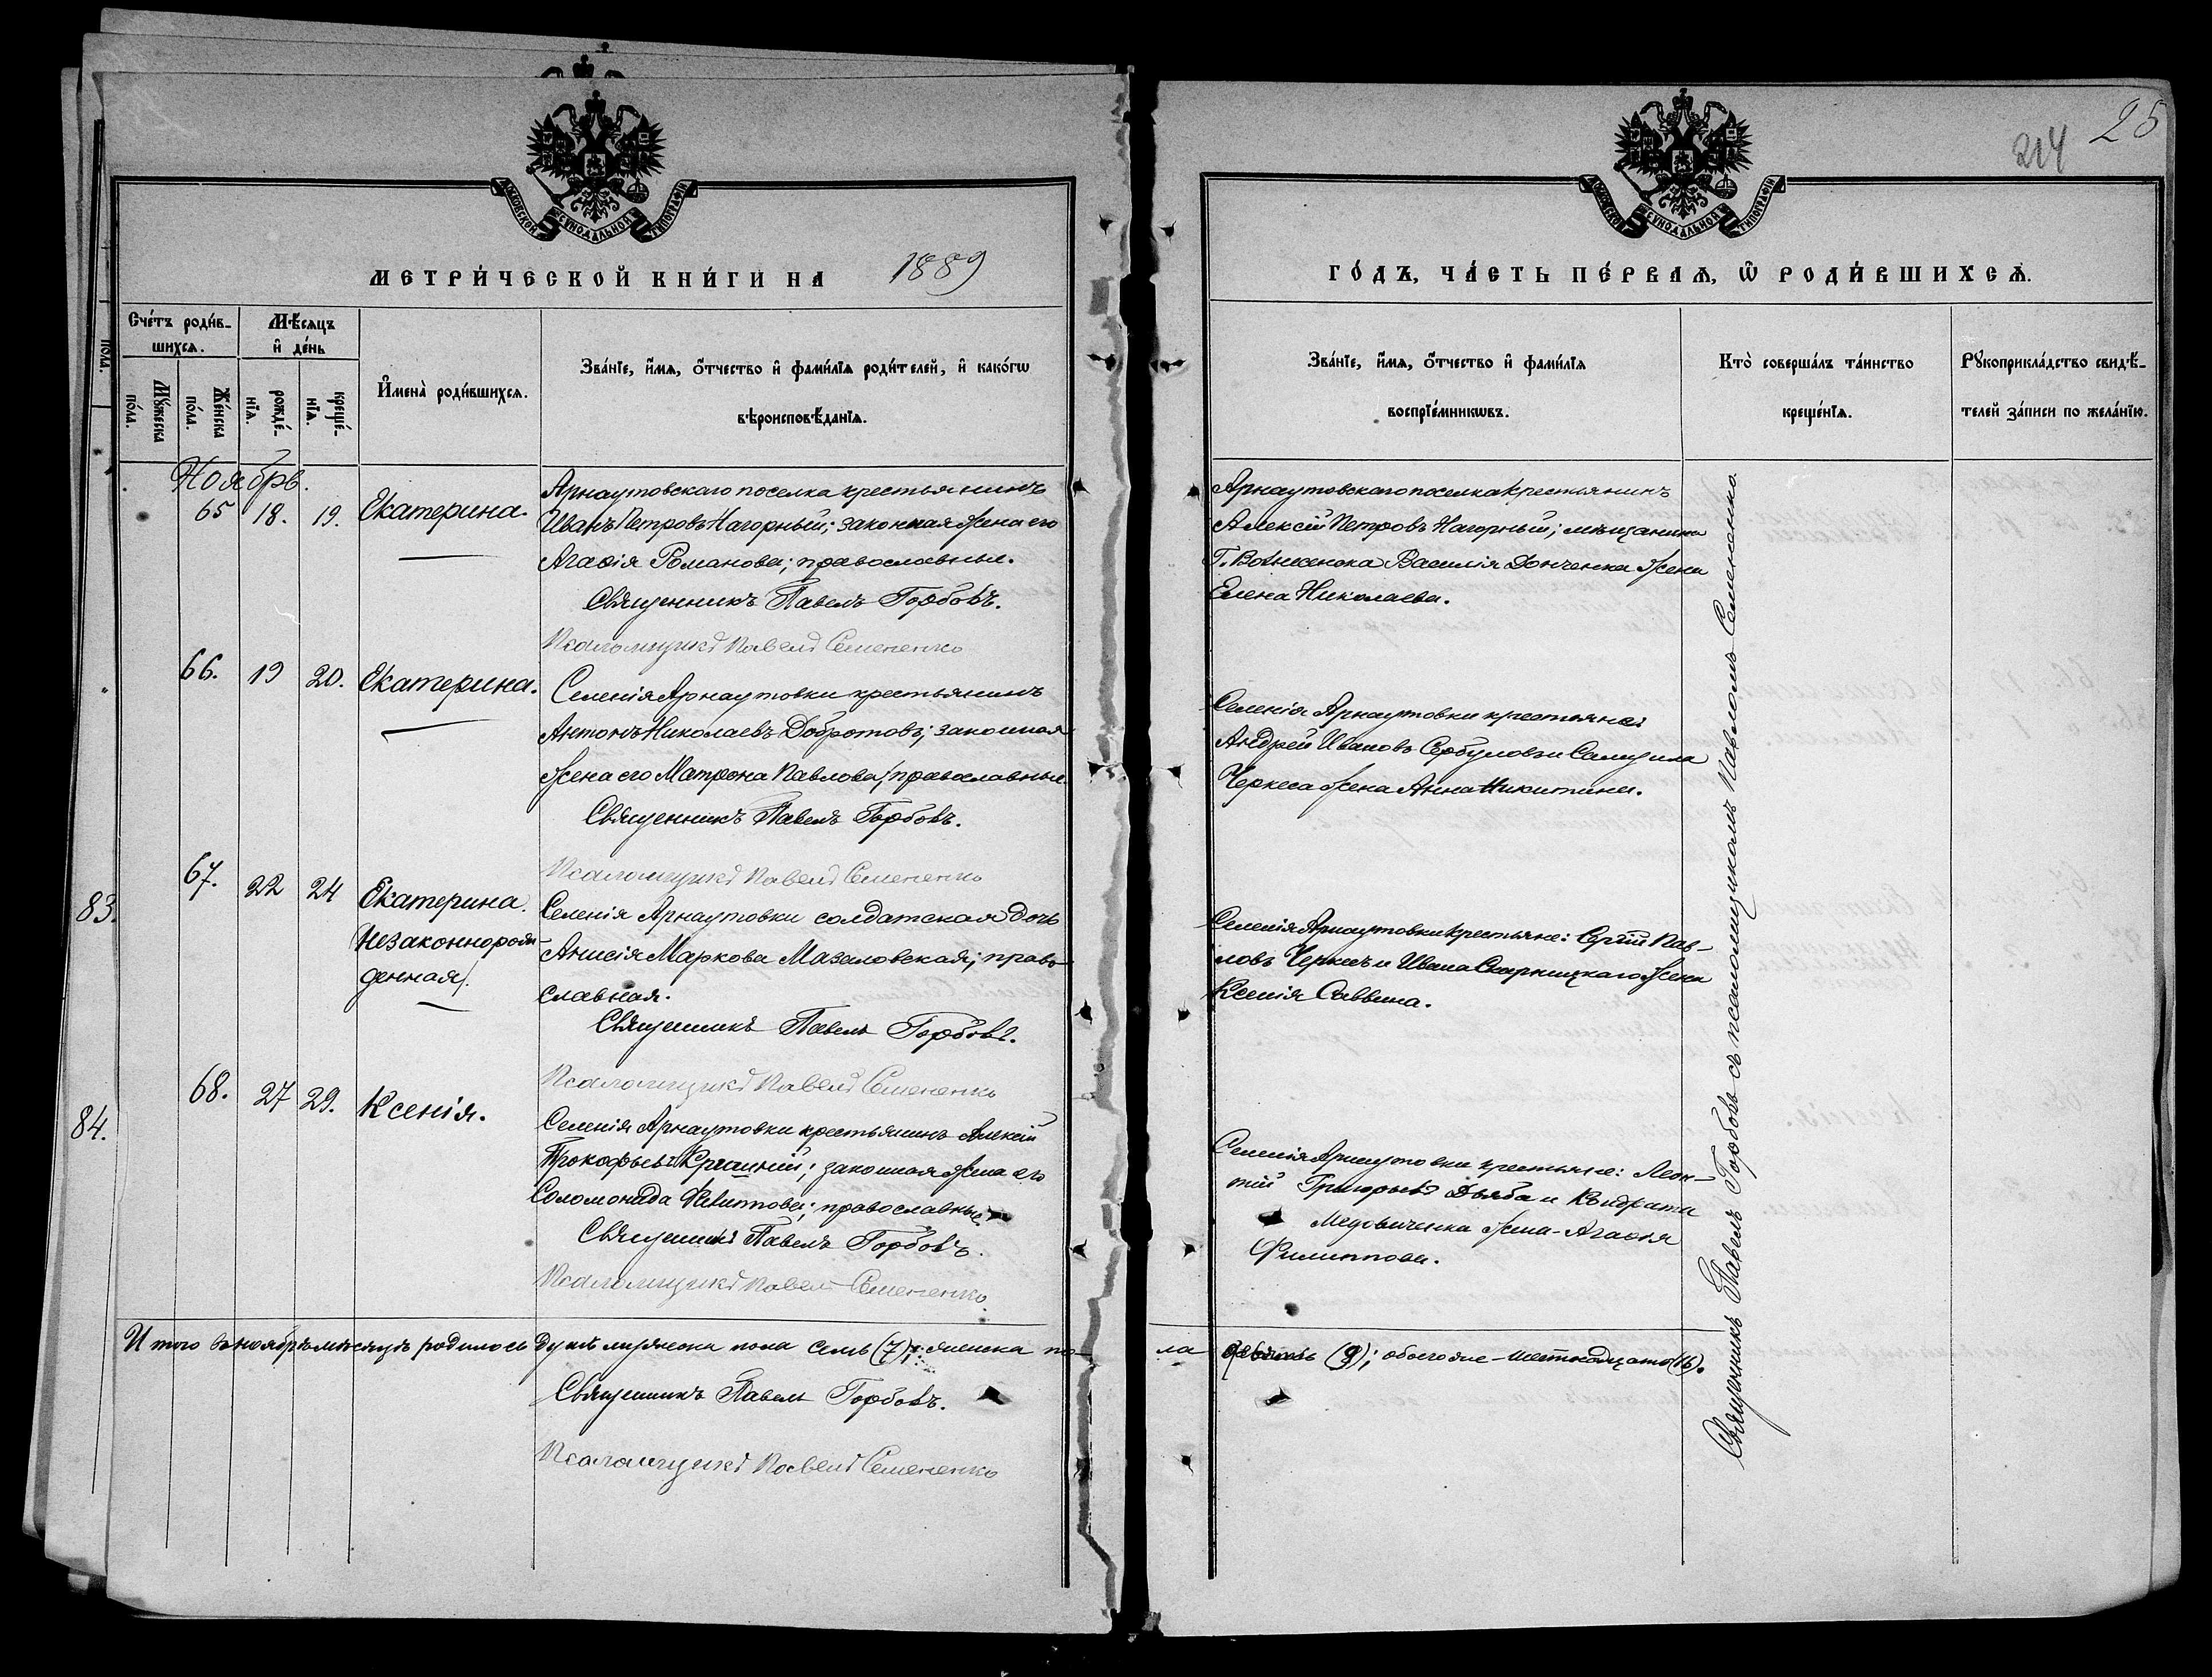 25
214
МОСКОВСКОЙ СѴНОДАЛЬНОЙ ТИПОГРАФІИ
МОСКОВСКОЙ СѴНОДАЛЬНОЙ ТИПОГРАФІИ
МЕТРИ́ЧЕСКОЙ КНИ́ГИ НА 1889
ГО́ДЪ, ЧА́СТЬ ПЕ́РВАѦ, Ѿ РОДИ́ВШИХСѦ.
Сче́тъ роди́в-
шихсѧ.
Мꙋ́жеска по́ла.
Же́нска по́ла.
Мѣ́сѧцъ
и҆ де́нь
рожде́-
нїѧ.
креще́-
нїѧ.
И҆мена̀ роди́вшихсѧ.
Зва́нїе, и҆́мѧ, ѻ҆́тчество и҆ фами́лїѧ роди́телей, и҆ како́гѡ
вѣроисповѣ́данїѧ.
Зва́нїе, и҆́мѧ, ѻ҆́тчество и҆ фами́лїѧ
воспрїе́мникѡвъ.
Кто̀ соверша́лъ та́инство
креще́нїѧ.
Рꙋкоприкла́дство свидѣ́-
телей за́писи по жела́нїю.
пола.
Ноябрь.
65 18. 19. Екатерина.
Арнаутовскаго поселка крестьянинъ
Иванъ Петровъ Нагорный; законная жена его
Агаѳія Романова; православные.
Священникъ Павелъ Горбовъ.
Псаломщикъ Павелъ Семененко
Арнаутовскаго поселка крестьянинъ
Алексій Петровъ Нагорный; мѣщанина
Г. Вознесенска Василія Донченка жена
Елена Николаева.
66. 19 20. Екатерина.
Селенія Арнаутовки крестьянинъ
Антонъ Николаевъ Добротовъ; законная
жена его Матрона Павлова; православные.
Священникъ Павелъ Горбовъ.
Псаломщикъ Павелъ Семененко
Селенія Арнаутовки крестьяне:
Андрей Ивановъ Сербуловъ и Самуила
Черкеса жена Анна Никитина.
83.
67. 22 24 Екатерина.
незаконнорож-
денная.
Селенія Арнаутовки солдатская дочь
Анисія Маркова Мазаловская; право-
славная.
Священникъ Павелъ Горбовъ.
Псаломщикъ Павелъ Семененко
Селенія Арнаутовки крестьяне: Сергій Пав-
ловъ Черкесъ и Ивана Скарницкаго жена
Ксенія Саввина.
84.
68. 27 29. Ксенія.
Селенія Арнаутовки крестьянинъ Алексій
Прокофьевъ; законная жена его
Соломонида; православные.
Священникъ Павелъ Горбовъ.
Псаломщикъ Павелъ Семененко
Селенія Арнаутовки крестьяне: Леон-
тій Григорьевъ Дзяба и Кондрата
Медовиченка жена-Агаѳія
Филиппова.
Священникъ Павелъ Горбовъ съ псаломщикомъ Павломъ Семененко
Итого въ ноябрѣ мѣсяцѣ родилось душъ мужеска пола семь (7); женска по-
ла девять (9); обоего же-шестнадцать (16).
Священникъ Павелъ Горбовъ.
Псаломщикъ Павелъ Семененко